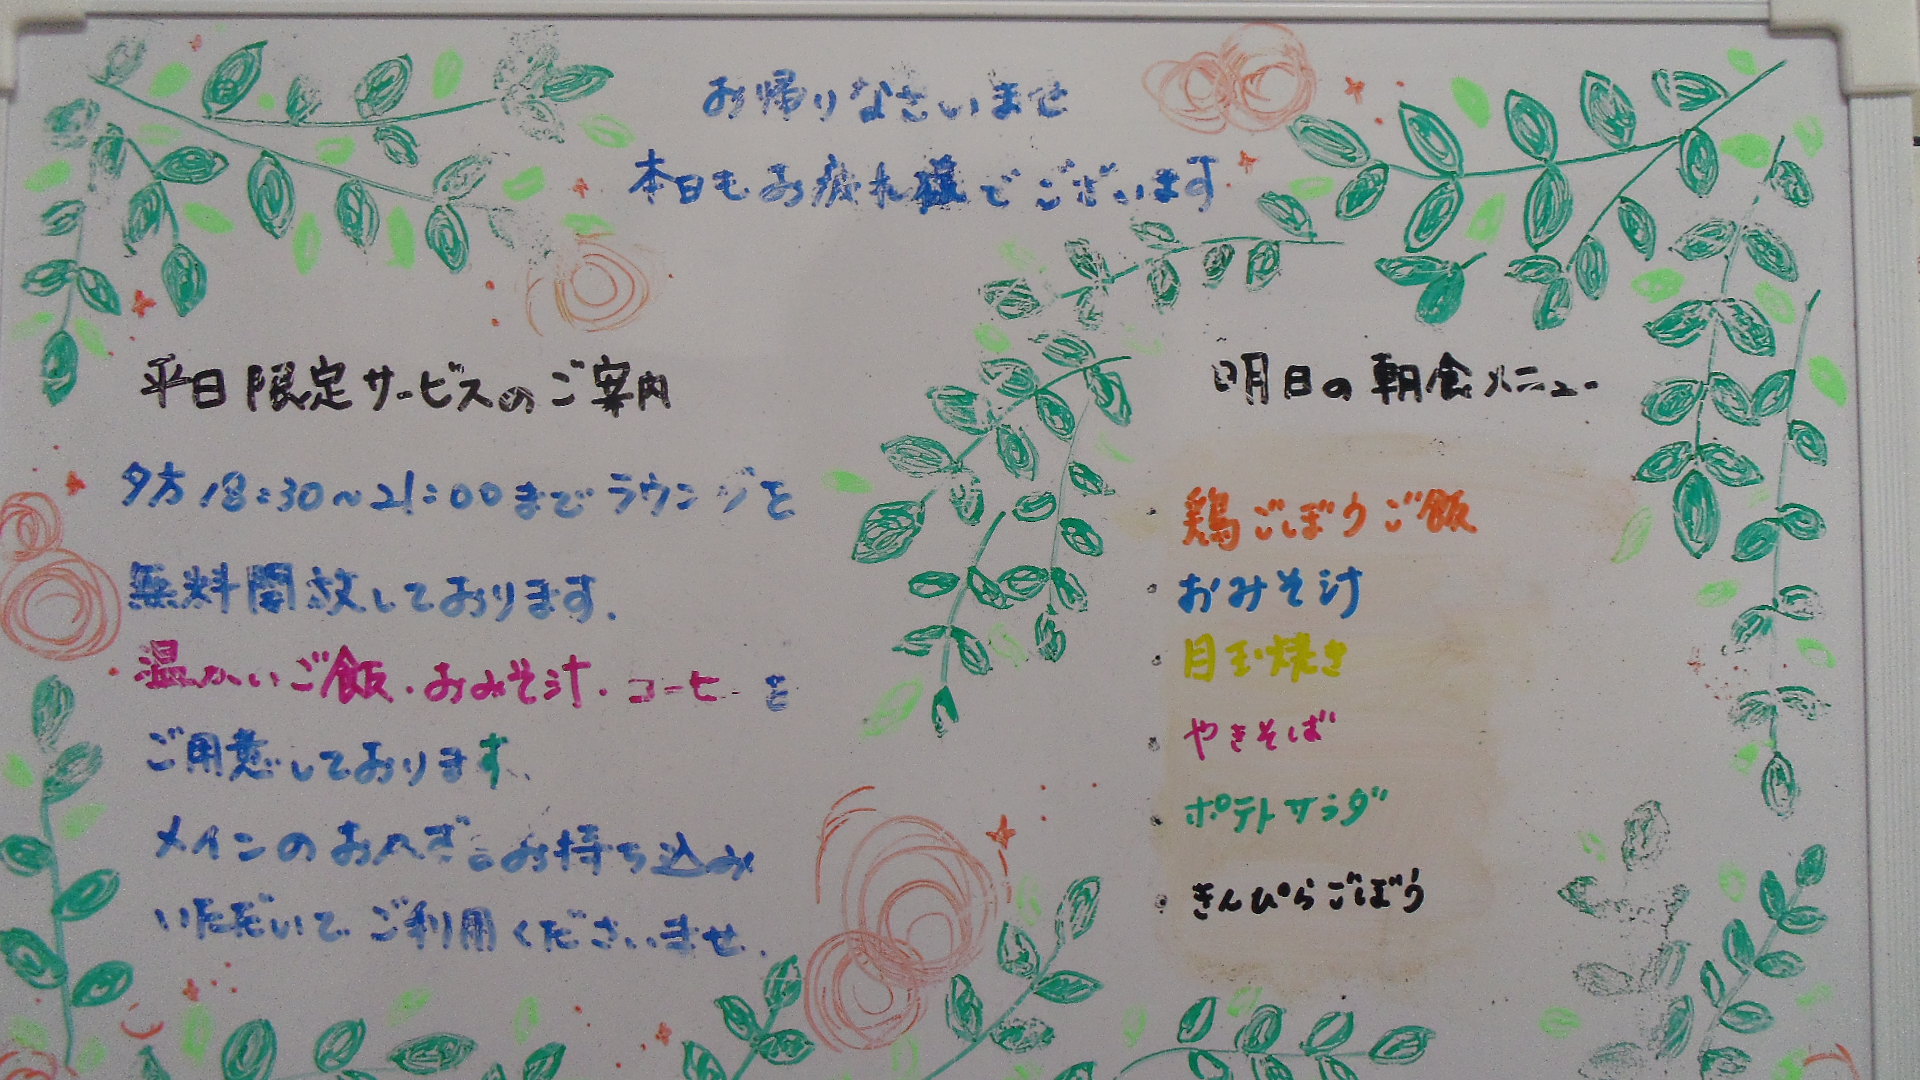 お帰りなさいませ
本日もお疲れ様でございます
平日限定サービスのご案内
夕方18:30~21:00までラウンジを
無料開放しております。
温かいご飯・おみそ汁・コーヒーを
ご用意しております。
メインのおかずはお持ち込み
いただいてご利用くださいませ。
明日の朝食メニュー
・鶏ごぼうご飯
・おみそ汁
・目玉焼き
・やきそば
・ポテトサラダ
・きんぴらごぼう